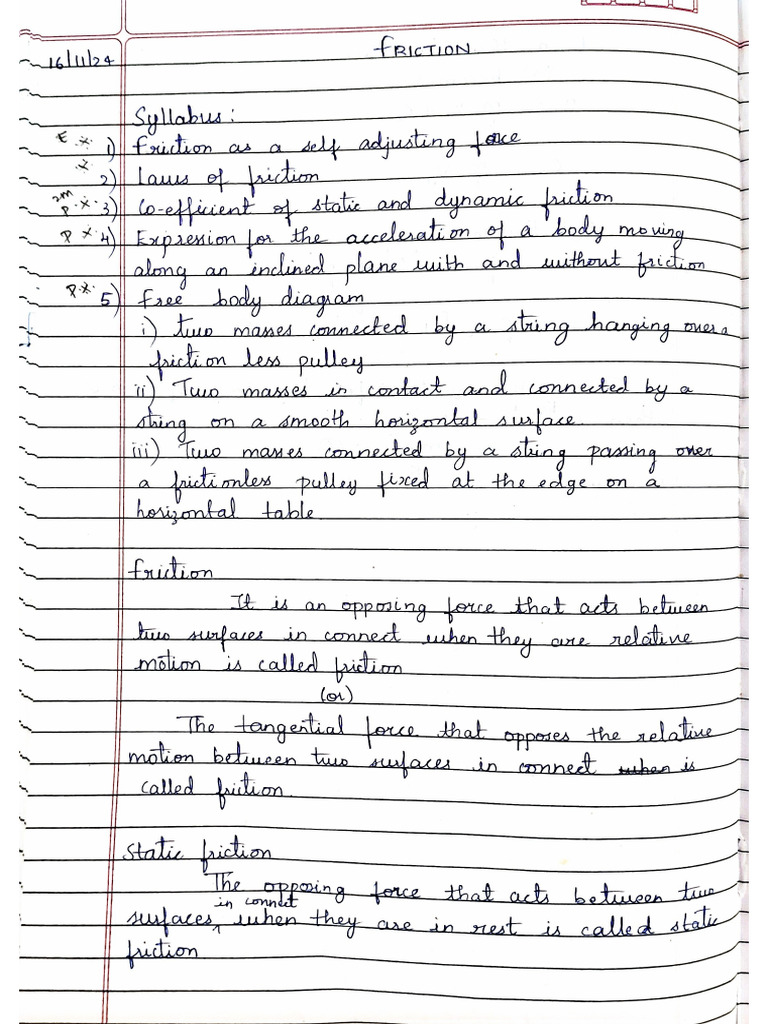 16/11/24
FRICTION
Syllabus:
E x 1) Friction as a self adjusting force
x 2) laws of friction
2m P x 3) Co-efficient of static and dynamic friction
P x 4) Expresion for the acceleration of a body moving
along an inclined plane with and without friction
P.x. 5) Free body diagram
i) two masses connected by a string hanging over a
friction less pulley
ii) Two masses in contact and connected by a
string on a smooth horizontal surface.
iii) Two masses connected by a string passing over
a frictionless pulley fixed at the edge on a
horizontal table
friction
It is an opposing force that acts between
two surfaces in connect when they are relative
motion is called friction
(or)
The tangential force that opposes the relative
motion between two surfaces in connect when is
called friction.
Static friction
The opposing force that acts between two
in connect
surfaces, when they are in rest is called static
friction